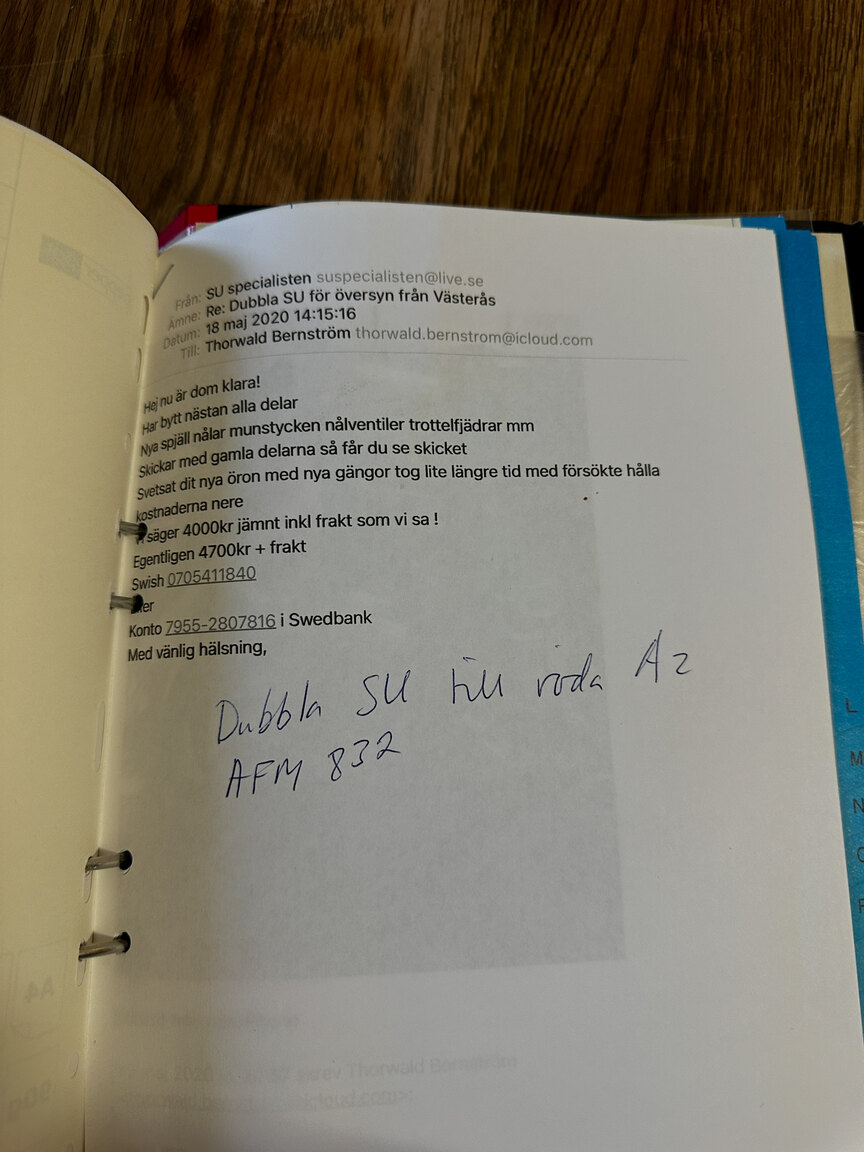 Från: SU specialisten suspecialisten@live.se
Ämne: Re: Dubbla SU för översyn från Västerås
Datum: 18 maj 2020 14:15:16
Till: Thorwald Bernström thorwald.bernstrom@icloud.com
Hej nu är dom klara!
Har bytt nästan alla delar
Nya spjäll nålar munstycken nålventiler trottelfjädrar mm
Skickar med gamla delarna så får du se skicket
Svetsat dit nya öron med nya gängor tog lite längre tid med försökte hålla
kostnaderna nere
säger 4000kr jämnt inkl frakt som vi sa !
Egentligen 4700kr + frakt
Swish 0705411840
Konto 7955-2807816 i Swedbank
Med vänlig hälsning,
Dubbla SU till röda Az
AFM 832
L
M
N